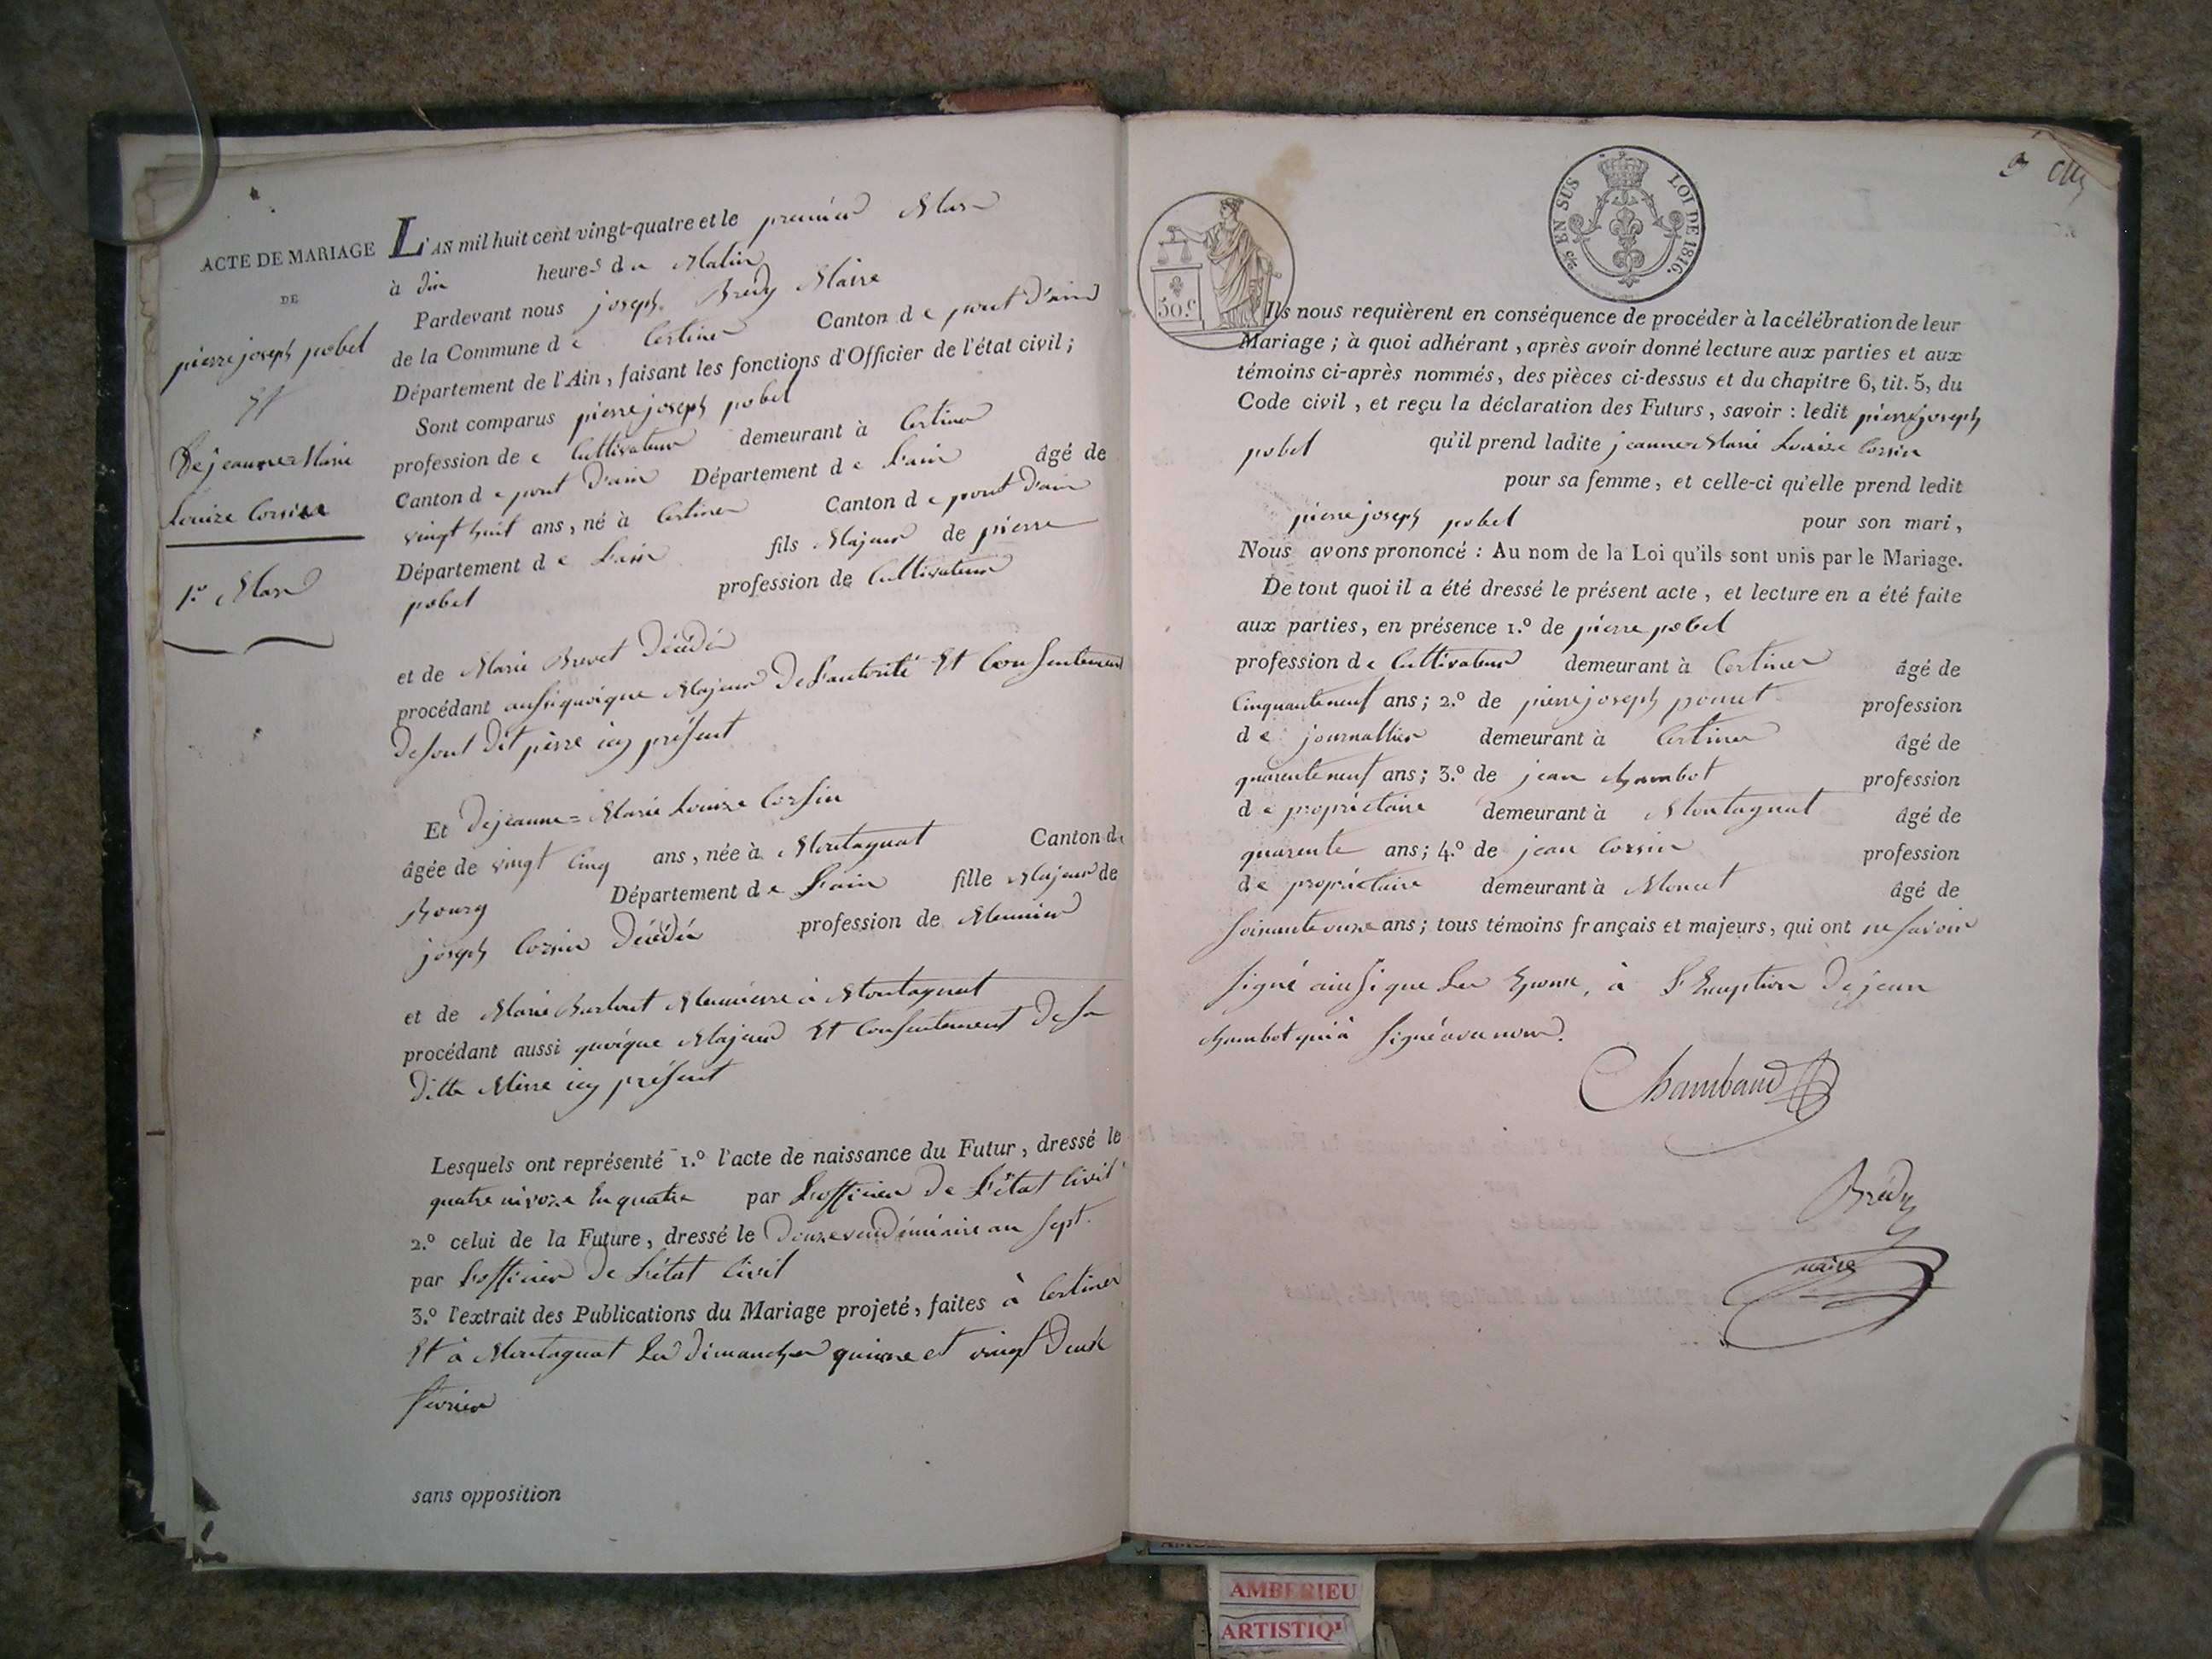 ACTE DE MARIAGE
DE
pierre joseph pobel
Et
De jeanne=Marie
Louize Corsin
1er Mars
L'AN mil huit cent vingt-quatre et le premier Mars
à dix heures du Matin
Pardevant nous joseph Bredy Maire
de la Commune de Certines Canton de pont d'ain
Département de l'Ain, faisant les fonctions d'Officier de l'état civil;
Sont comparus pierre joseph pobel
profession de Cultivateur demeurant à Certines
Canton de pont D'ain Département de L'ain âgé de
vingt huit ans, né à Certines Canton de pont D'ain
Département de L'ain fils Majeur de pierre
pobel profession de Cultivateur
et de Marie Brevet Décédée
procédant aussi quoique Majeur De L'autorité Et Consentement
De sont Dit pierre icy présent
Et De jeanne=Marie Louize Corsin
âgée de vingt Cinq ans, née à Montagnat Canton de
Bourg Département de L'ain fille Majeur de
joseph Corsin Décédé profession de Meunier
et de Marie Meunierre à Montagnat
procédant aussi quoique Majeur Et Consentement De sa
Ditte Merre icy présent
Lesquels ont représenté 1.º l'acte de naissance du Futur, dressé le
quatre nivoze En quatre par L'officier De L'état Civil
2.º celui de la Future, dressé le Douze vendémiaire an sept
par L'officier De L'état Civil
3.º l'extrait des Publications du Mariage projeté, faites à Certines
Et à Montagnat Les Dimanches quinze et vingt Deux
février
sans opposition
c/es EN SUS LOI DE 1816.
50.c
Ils nous requièrent en conséquence de procéder à la célébration de leur
Mariage; à quoi adhérant, après avoir donné lecture aux parties et aux
témoins ci-après nommés, des pièces ci-dessus et du chapitre 6, tit. 5, du
Code civil, et reçu la déclaration des Futurs, savoir: ledit pierre joseph
pobel qu'il prend ladite jeanne=Marie Louize Corsin
pour sa femme, et celle-ci qu'elle prend ledit
pierre joseph pobel pour son mari,
Nous avons prononcé: Au nom de la Loi qu'ils sont unis par le Mariage.
De tout quoi il a été dressé le présent acte, et lecture en a été faite
aux parties, en présence 1.º de pierre pobel
profession de Cultivateur demeurant à Certines âgé de
Cinquante neuf ans; 2.º de pierre joseph profession
de journallier demeurant à Certines âgé de
quarente neuf ans; 3.º de jean Chambot profession
de propriétaire demeurant à Montagnat âgé de
quarente ans; 4.º de jean Corsin profession
de propriétaire demeurant à âgé de
Soixante onze ans; tous témoins français et majeurs, qui ont ne savoir
signé ainsi que Les Epoux, à L'Exception De jean
Chambot qui à signé avec nous.
Chambaud
Bredy
maire
AMBERIEU
ARTISTIQ